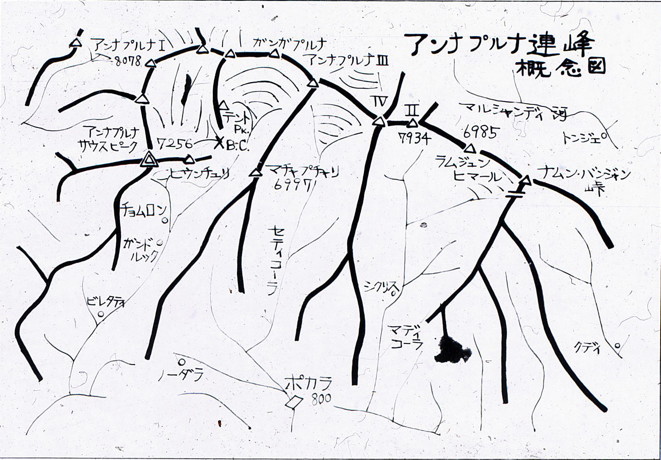 アンナプルナ連峰
概念図
アンナプルナI
8078
ガンガプルナ
アンナプルナIII
IV
II
7934
マルシャンディ河
6985
トンジェ
テント
Pk.
B.C.
アンナプルナ
サウスピーク
7256
ヒウンチュリ
マチャプチャリ
6997
ラムジュン
ヒマール
ナムン・バンジャン
峠
チョムロン
ガンド
ルック
セティコーラ
シクリス
ビレタティ
マディ
コーラ
クディ
ノーダラ
ポカラ
800